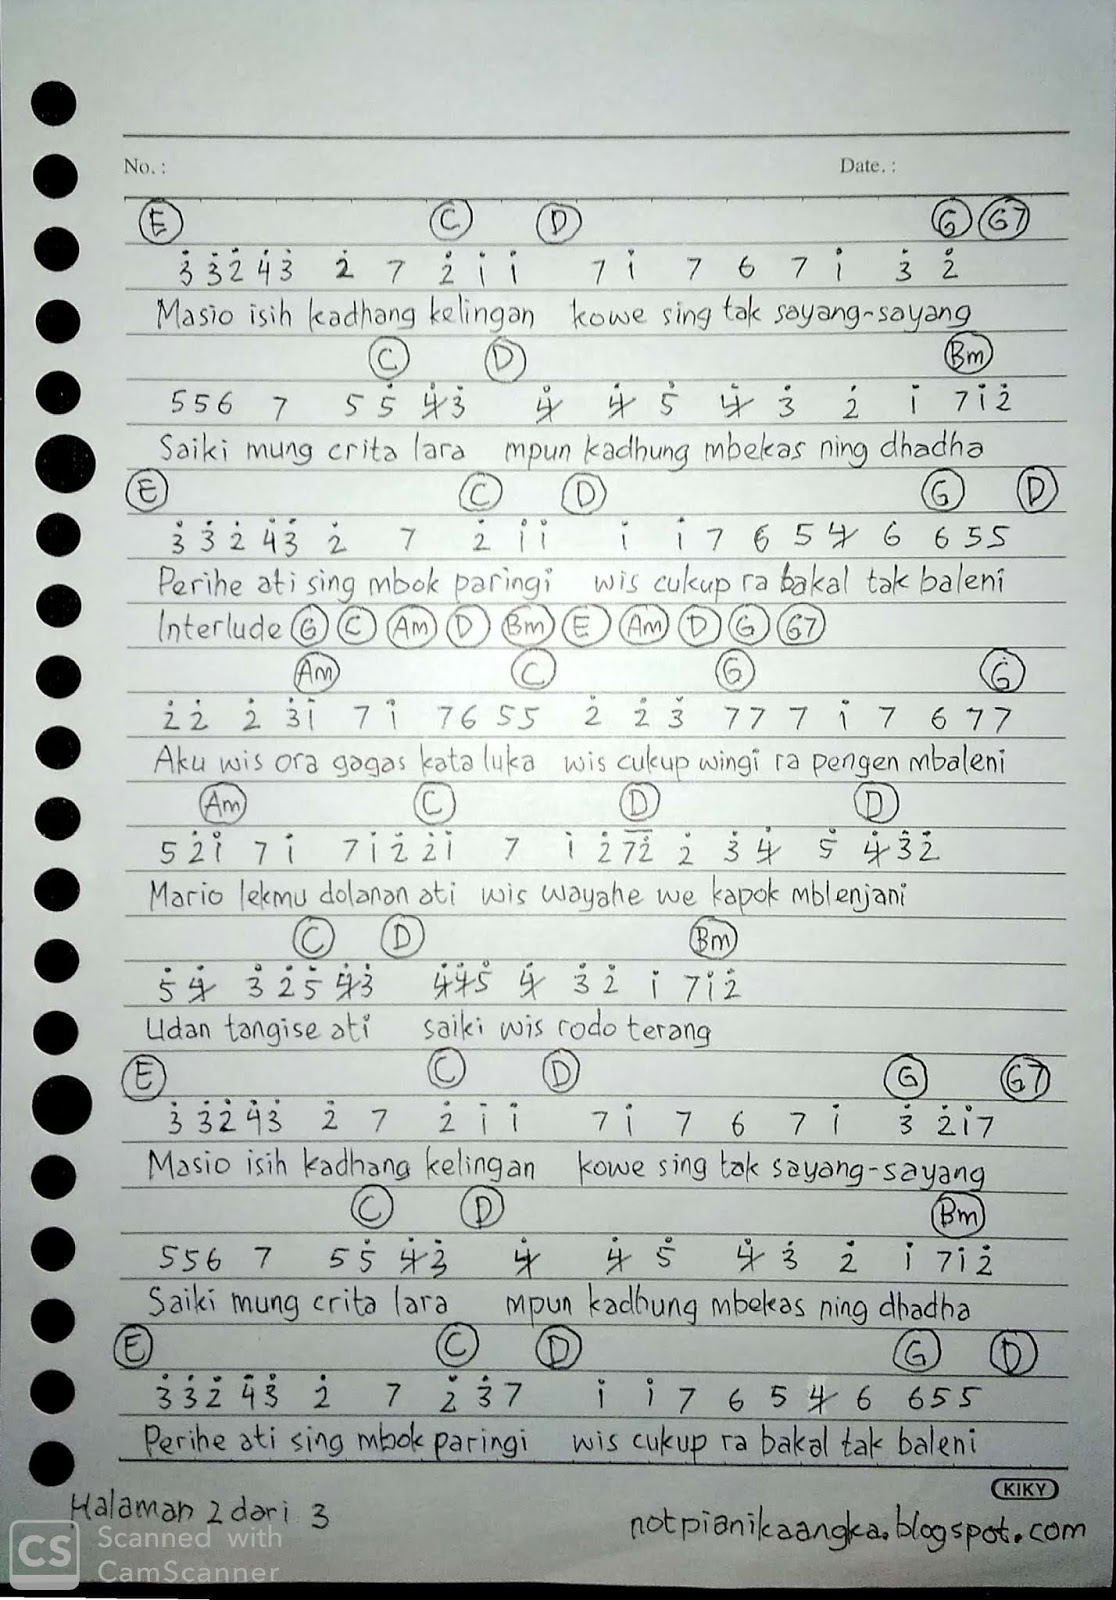 No. : Date. :
E C D G G7
3̇ 3̇ 2̇ 4̇ 3̇ 2̇ 7 2̇ 1̇ 1̇ 7 1̇ 7 6 7 1̇ 3̇ 2̇
Masio isih kadhang kelingan kowe sing tak sayang-sayang
C D Bm
5 5 6 7 5 5̇ 4̸̇ 3̇ 4̸̇ 4̸̇ 5̇ 4̸̇ 3̇ 2̇ 1̇ 7 1̇ 2̇
Saiki mung crita lara mpun kadhung mbekas ning dhadha
E C D G D
3̇ 3̇ 2̇ 4̇ 3̇ 2̇ 7 2̇ 1̇ 1̇ 1̇ 1̇ 7 6 5 4̸ 6 6 5 5
Perihe ati sing mbok paringi wis cukup ra bakal tak baleni
Interlude G C Am D Bm E Am D G G7
Am C G G
2̇ 2̇ 2̇ 3̇ 1̇ 7 1̇ 7 6 5 5 2̇ 2̇ 3̇ 7 7 7 1̇ 7 6 7 7
Aku wis ora gagas kata luka wis cukup wingi ra pengen mbaleni
Am C D D
5 2̇ 1̇ 7 1̇ 7 1̇ 2̇ 2̇ 1̇ 7 1̇ 2̇ 7 2̇ 2̇ 3̇ 4̸̇ 5̇ 4̸̇ 3̇ 2̇
Mario lekmu dolanan ati wis wayahe we kapok mblenjani
C D Bm
5̇ 4̸̇ 3̇ 2̇ 5̇ 4̸̇ 3̇ 4̸̇ 4̸̇ 5̇ 4̸̇ 3̇ 2̇ 1̇ 7 1̇ 2̇
Udan tangise ati saiki wis rodo terang
E C D G G7
3̇ 3̇ 2̇ 4̇ 3̇ 2̇ 7 2̇ 1̇ 1̇ 7 1̇ 7 6 7 1̇ 3̇ 2̇ 1̇ 7
Masio isih kadhang kelingan kowe sing tak sayang-sayang
C D Bm
5 5 6 7 5 5̇ 4̸̇ 3̇ 4̸̇ 4̸̇ 5̇ 4̸̇ 3̇ 2̇ 1̇ 7 1̇ 2̇
Saiki mung crita lara mpun kadhung mbekas ning dhadha
E C D G D
3̇ 3̇ 2̇ 4̇ 3̇ 2̇ 7 2̇ 3̇ 7 1̇ 1̇ 7 6 5 4̸ 6 6 5 5
Perihe ati sing mbok paringi wis cukup ra bakal tak baleni
KIKY
Halaman 2 dari 3
notpianikaangka.blogspot.com
CS Scanned with
CamScanner